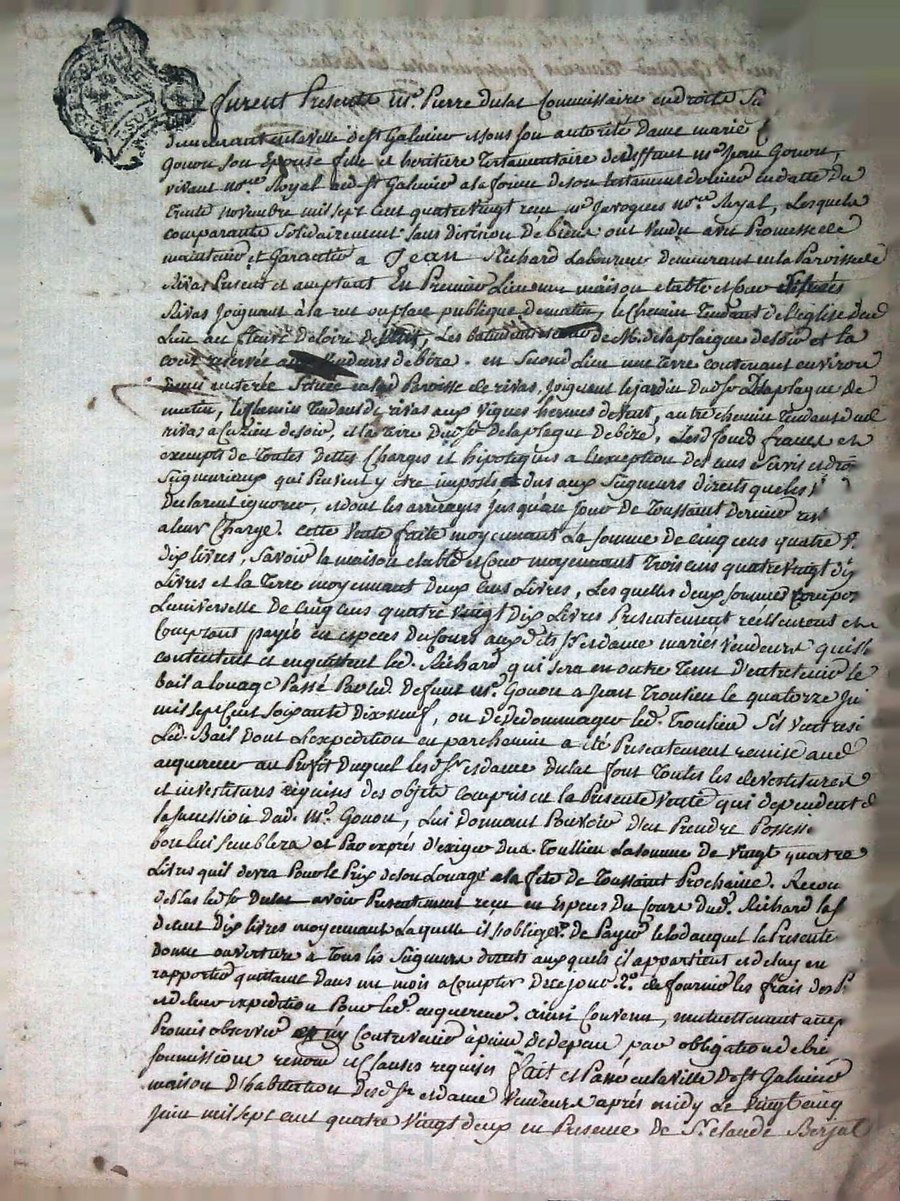 furent Presents Mr. Pierre Dulac Commissaire en droits Sei
demeurant en la ville de St Galmier et sous son autorité Dame marie
Gonon son Epouse fille et heritiere Testamentaire de deffunt mr. Jean Gonon,
vivant nore. Royal aud St Galmier a la forme de son testament en datte du
trente novembre mil sept cent quatre vingt recu me Javogues nore. Royal, Lesquels
comparants Solidairement sans division de biens ont vendu avec Promesse de
maintenir et Garantir a Jean Richard Laboureur Demeurant en la Paroisse de
Rivas Present et acceptant En Premier Lieu une maison etable et cour
Rivas Joignant à la rue ou place publique de matin, le Chemin Tendant de l'eglise dud
Lieu au fleuve de loire de Les de Mr. de la plaigne de soir et la
cour reservée vendeurs de bize. en Second Lieu une Terre contenant environ
Située Paroisse de rivas, Joignant le jardin dud Sr Delaplagne de
matin, le Chemin Tendant de rivas aux vignes de vent, autre chemin Tendant de
rivas a Cuzieu de soir, et la terre dud Sr delaplagne de bize, Lesd fonds francs et
exempts de Toutes dettes Charges et hipoteques a l'exception des cens Servis et
Seigneuriaux qui Peuvent y être imposés dus aux Seigneurs directs quels
declarent ignorer, et dont les arrerages jusqu'au jour de Toussaint Dernier
a leur Charge. Cette Vente faite moyennant La somme de Cinq cens quatre
dix livres, Savoir la maison etable et Cour moyennant Trois cens quatre vingt dix
Livres et la Terre moyennant deux cens Livres, Les quelles deux sommes
L'universelle de Cinq cens quatre vingt Dix Livres Presentement réellement
Comptant payée en especes du Cours aux dits Sr et dame mariés Vendeurs
contentent et en quittent led. Richard, qui sera en outre Tenu d'entretenir le
Bail a louage Passé Par led. defunt Mr. Gonon a Jean Troulieu le quatorze
mil sept Cent Soixante Dix neuf, ou de Dedommager led. Troulieu S'il
Led. Bail dont L'expedition en parchemin a été Presentement remise aud
acquereur au Profit duquel lesd Sr et dame Dulac font Toutes les devestitures
et investitures requises des objets compris en la Presente Vente qui dependent de
la succession dud. Mr. Gonon, Lui donnant Pouvoir d'en Prendre
bon lui semblera et Par exprés d'exiger dud. Toullieu La somme de vingt quatre
Livres qu'il devra Pour le Prix de son Louage a la fete de Toussaint Prochaine.
led Sr Dulac avoir Presentement recu en Especes du Cours dud. Richard
Dix livres moyennant Laquelle il s'oblige de Payer le lod auquel la Presente
Donne ouverture à Tous les Seigneurs directs auxquels il appartient et
rapporter quittance Dans un mois a compter De ce jour. 2o. de fournir les frais des
et de leur expedition Pour led. acquereur. ainsi Convenu, mutuellement
Promis observer Contrevenir à peine de depens par obligation de
soumissions renon et Clauses requises fait et Passé en la Ville de St Galmier
maison D'habitation Desd Sr et dame Vendeurs après midy Le vingt cinq
juin mil sept cent quatre Vingt deux en Presence de Sr. claude Berjat